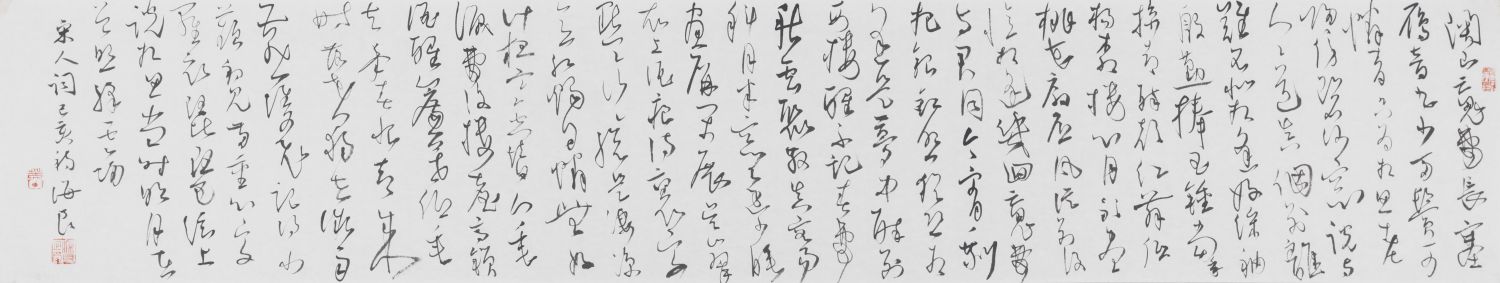 关山魂梦长塞
雁音书少两鬓可
怜青只为相思老
归傍碧纱窗说与
人人道真个别离
难不似相逢好彩袖
殷勤捧玉钟当年
拚却醉颜红舞低
杨柳楼心月歌尽
桃花扇底风从别后
忆相逢几回魂梦
与君同今宵剩
把银釭照犹恐相
逢是梦中醉别
西楼醒不记春梦
秋云聚散真容易
斜月半窗还少睡
画屏闲展吴山翠
衣上酒痕诗里字
点点行行总是凄凉
意红烛自怜无好
计夜寒空替人垂
泪梦后楼台高锁
酒醒帘幕低垂
去年春恨却来
时落花人独立微雨
燕双飞记得小
蘋初见两重心字
罗衣琵琶弦上
说相思当时明月在
曾照彩云归
宋人词己亥海良